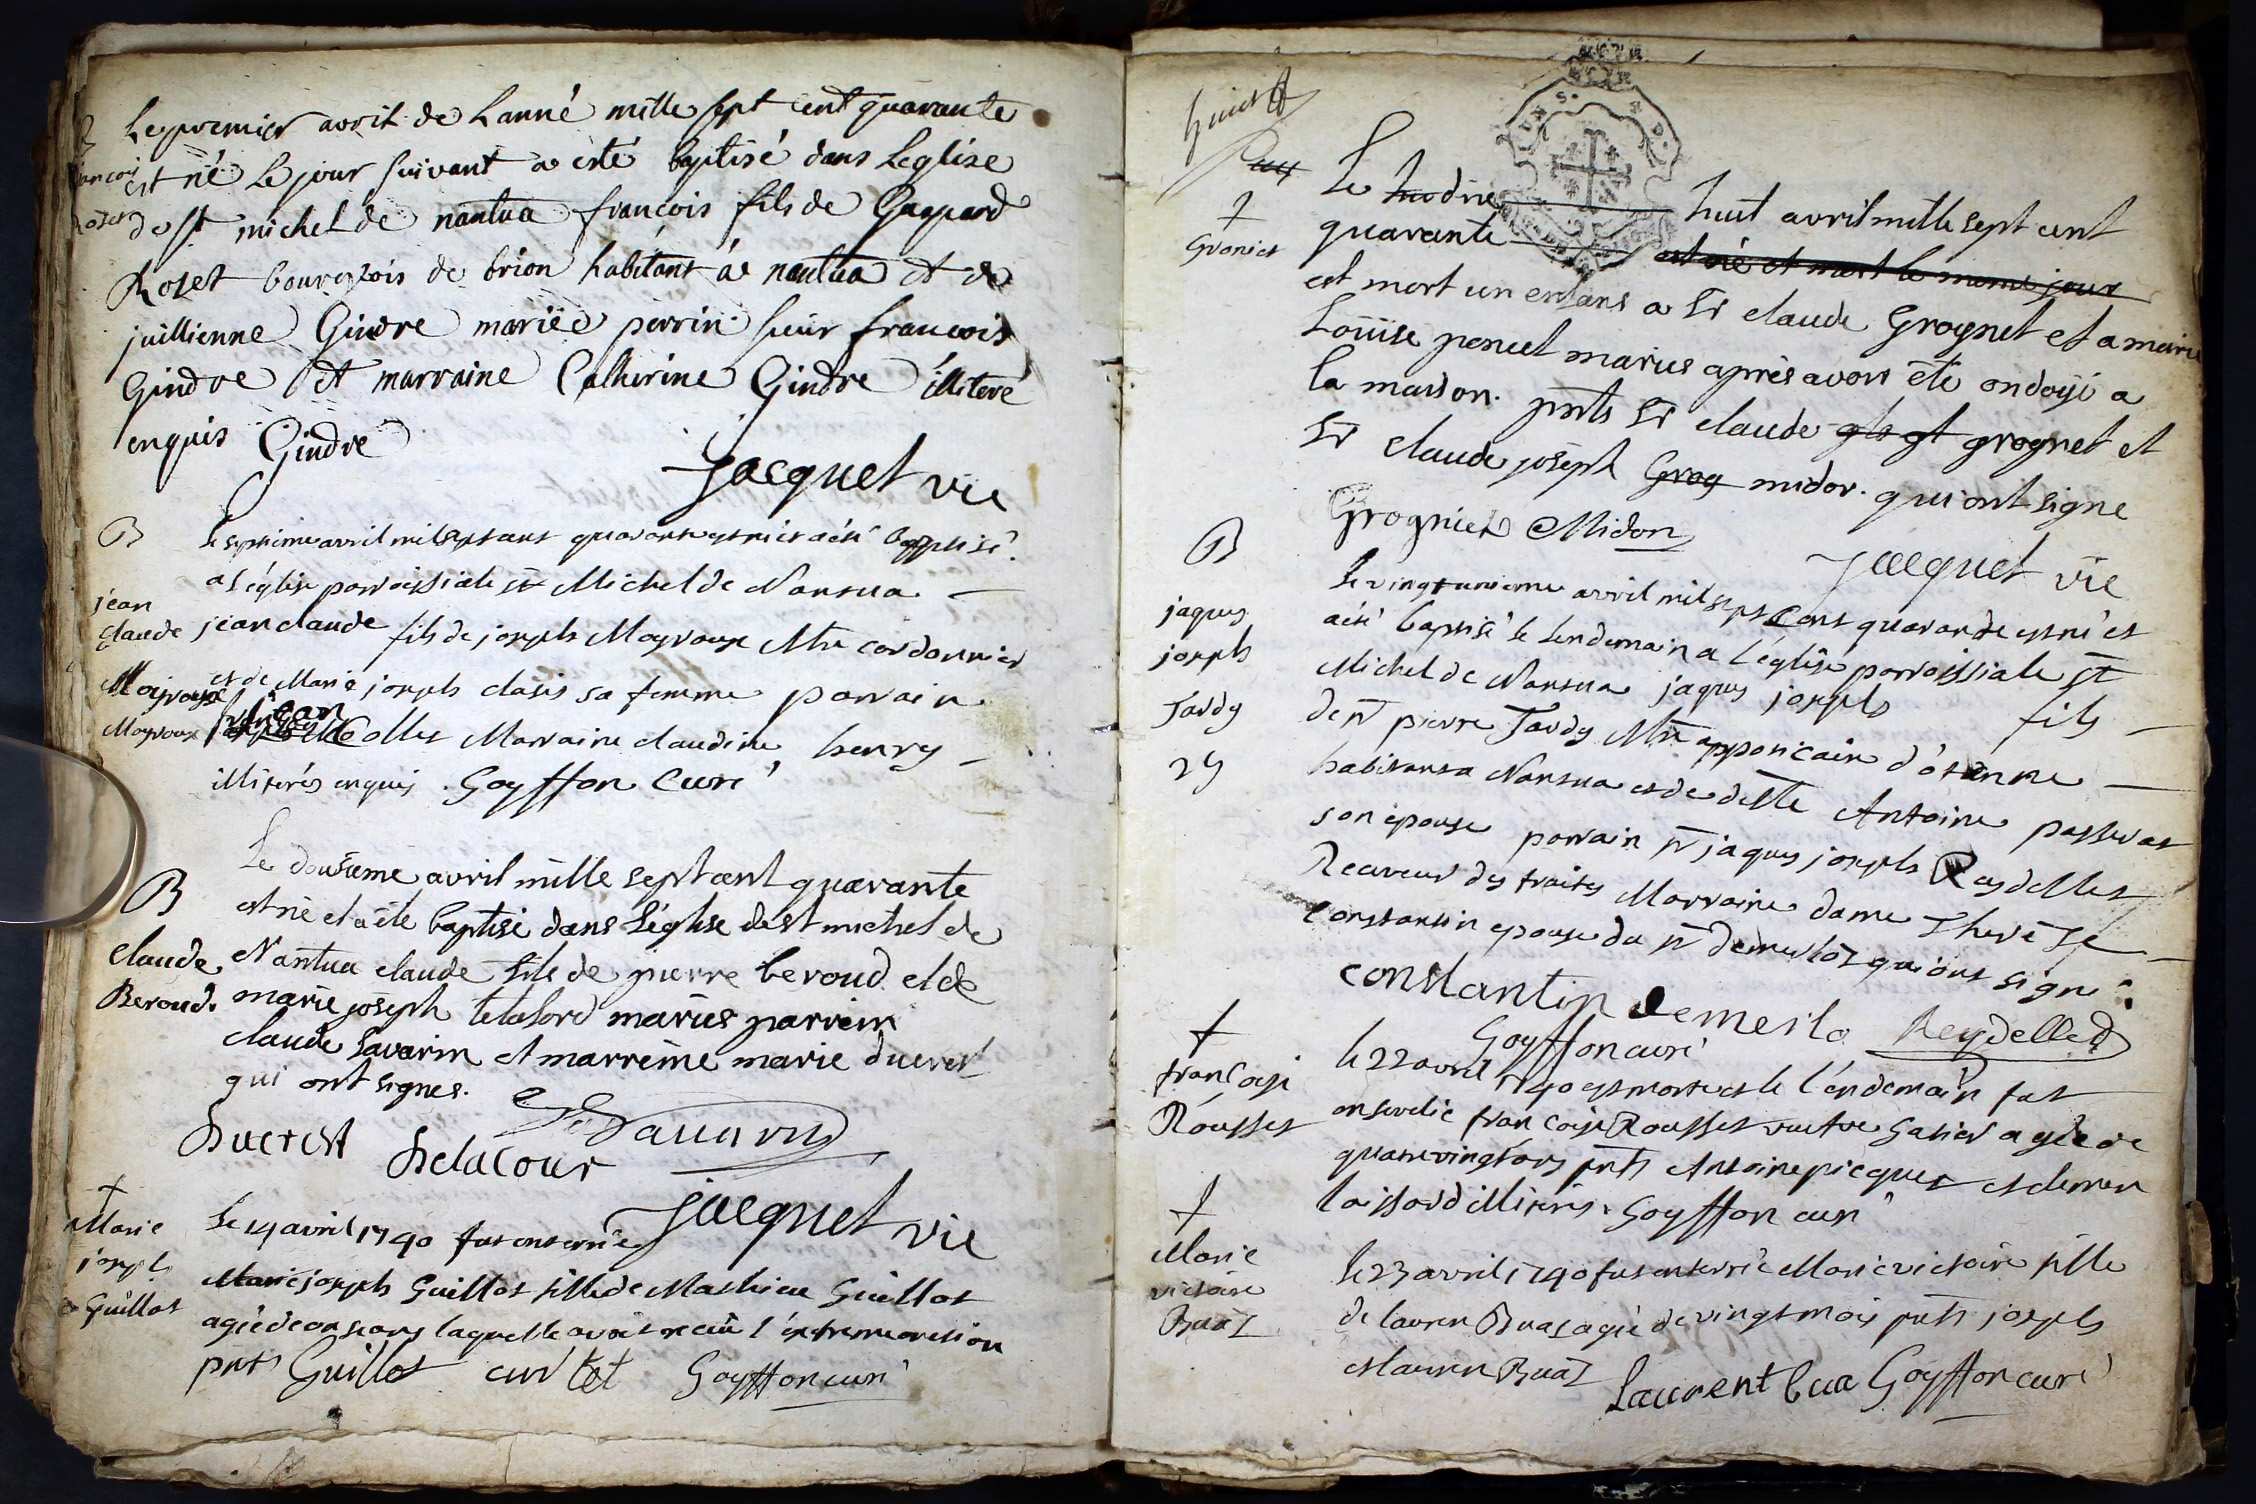 Le premier avril de Lanné mille sept cent quarante
B
françois
Roset
est né Le jour suivant a esté baptisé dans Leglise
de st michel de nantua françois fils de Gaspard
Roset bourgeois de brion habitant à nantua et de
juillienne Gindre mariée perrin sieur francois
Gindre et marraine Catherine Gindre illiteré
enquis Gindre
Jacquet vic
B
jean
Claude
Moyroux
Moyroux
Le septieme avril mil sept cens quarante est né et a été baptisé
a L'église parroissiale st Michel de Nantua
jean claude fils de joseph Moyroux Mtre cordonnier
et de Marie joseph clasis sa femme parrain
jean Collet Marraine claudine henry
illiterés enquis. Goyffon Curé
B
Claude
Beroud.
Le dousieme avril mille sept cent quarante
est né et a été baptisé dans L'église de st michel de
Nantua claude fils de pierre beroud et de
marie joseph mariés parrein
claude savarin et marreine marie ducrest
qui ont signés.
Savarin
Ducrest Delacour
Jacquet vic
†
Marie
joseph
Guillot
Le 14 avril 1740 fut enterrée
Marie joseph Guillot fille de Mathieu Guillot
agée de onse ans laquelle avoit reçû l'extremonction
pnts Guillot curtet Goyffon curé
huict
†
Grognet
Le huit avril mille sept cent
quarante est né et mort le meme jour
est mort un enfans a sr claude Grognet et a marie
Loüise poncet mariés après avoir été ondoyé a
la maison. pnts sr claude grognet et
sr claude joseph Grog midor. qui ont signe
Grognet Midon
Jacquet vic
B
jaques
joseph
Tardy
25
Le vingt unieme avril mil sept Cens quarante est né et
a été baptisé le Lendemain a l'église parroissiale st
Michel de Nantua jaques joseph fils
de sr pierre Tardy Mtre appoticaire d'
habitant a Nantua et de delle Antoine passerat
son epouse parrain sr jaques joseph Reydellet
Receveur des traites Marraine dame Therése
Constantin epouse du sr demerloz qui ont signé:
constantin demerlo Reydellet
Goyffon curé
†
françoise
Rousset
le 22 avril 1740 est morte et le l'endemain fut
ensevelie françoise Rousset vuefve Gatier agée de
quatrevingt ans pnts Antoine picquet et clemen
loissard illiterés. Goyffon curé
†
Marie
victoire
Buaz
le 23 avril 1740 fut enterrée Marie victoire fille
de lauren Buaz agée de vingt mois pnts joseph
et lauren Buaz
Laurent bua Goyffon curé